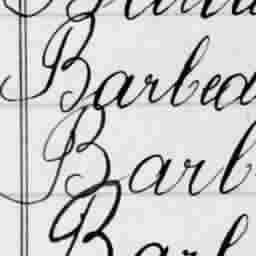 Barbed
Barb
Barb